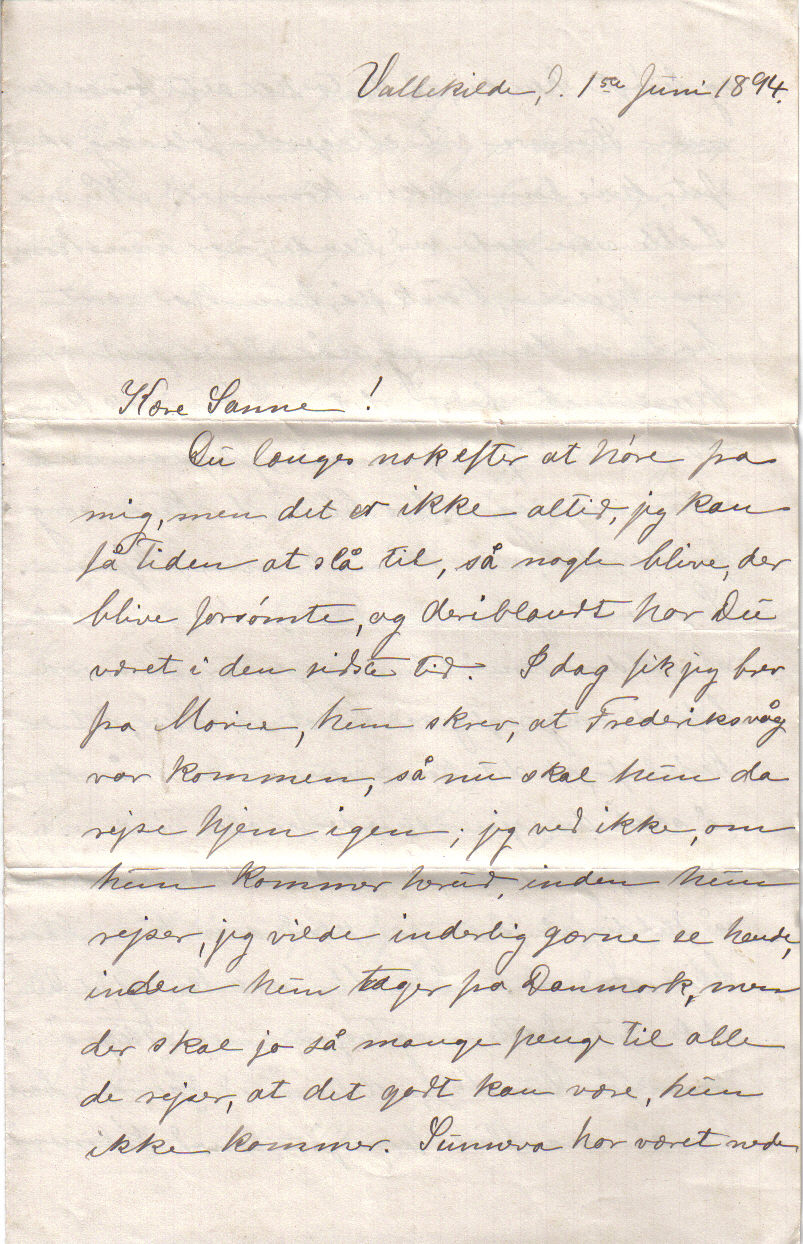 Vallekilde, d. 1ste Juni 1894.
Kære Sanne!
Du længes nok efter at høre fra
mig, men det er ikke altid, jeg kan
få Tiden at slå til, så nogle blive, der
blive forsømte, og deriblandt har Du
været i den sidste tid. I dag fik jeg brev
fra Maria, hun skrev, at Frederiksvåg
var kommen, så nu skal hun da
rejse hjem igen; jeg ved ikke, om
hun kommer herud, inden hun
rejser, jeg vilde inderlig gærne se hende,
inden hun tager fra Danmark, men
der skal jo så mange penge til alle
de rejser, at det godt kan være, hun
ikke kommer. Sunneva har været nede